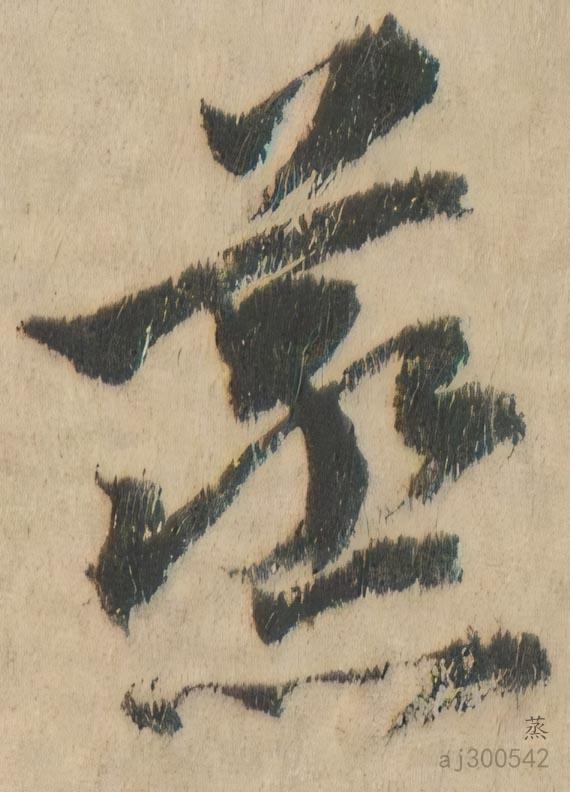 蒸
蒸
aj300542